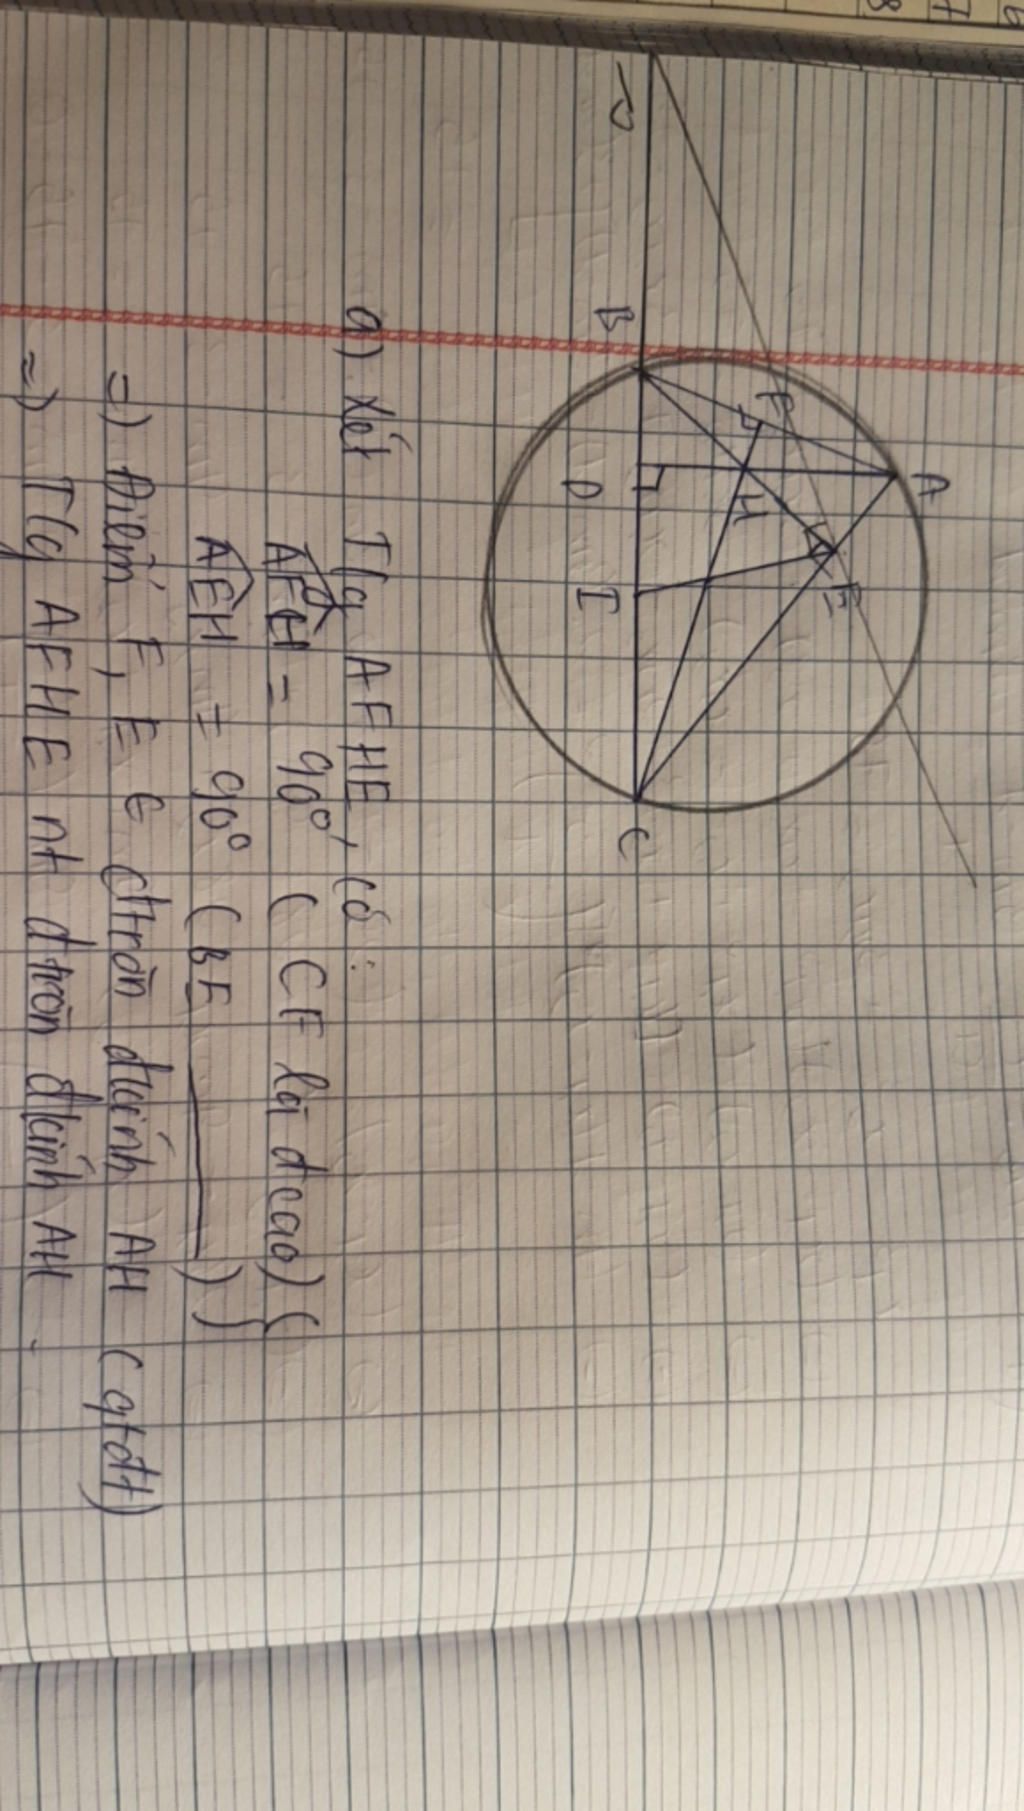 A
F
E
H
J
B
D
I
C
a) Xét Tg AFHE, có:
AFH = 90° (CF là đcao)
AEH = 90° (BE ______)
=) Điểm F, E ∈ đtròn đkính AH (gtđt)
=) Tg AFHE nt đtròn đkính AH.